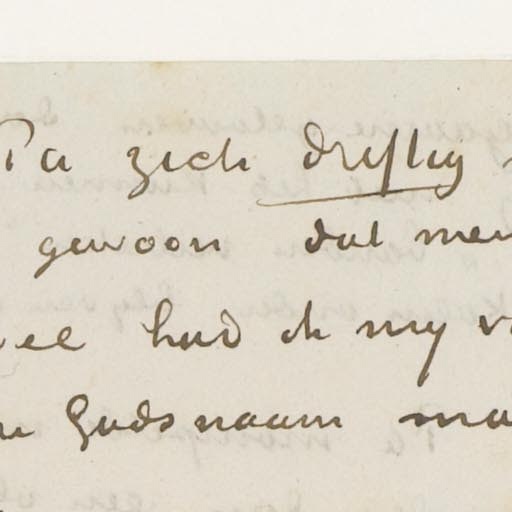 Pa zich driftig
gewoon dat men
had ik my
Gods naam